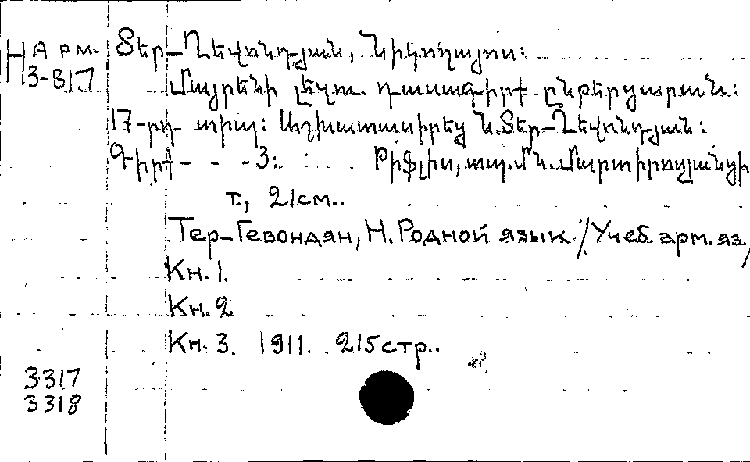 Н Арм.
3-817
Տեր-Ղեվոնդյան, Նիկողայոս։
Մայրենի լեզու. դասագիրք ընթերցարան։
17-րդ տիպ։ Աշխատասիրեց Ն.Տեր-Ղեվոնդյան։
Գիրք - - -3։ Թիֆլիս, տպ. Ն. Մարտիրոսյանցի
т., 21см..
Тер-Гевондян, Н. Родной язык./Учеб. арм. яз,
Кн. 1.
Кн. 2
Кн. 3. 1911. 215стр..
3317
3318